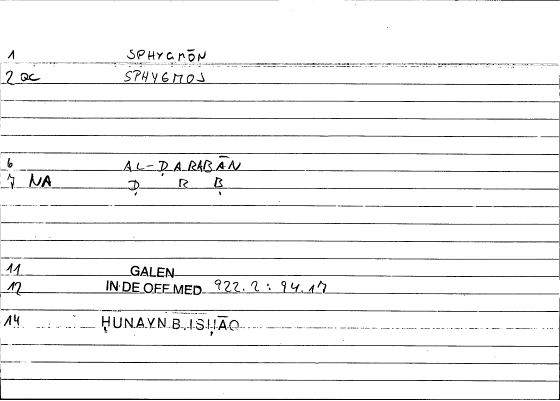 1 SPHYGMŌN
2 GC SPHYGMOS
6 AL-ḌARABĀN
7 NA Ḍ R B
11 GALEN
12 IN DE OFF MED 922.2 : 94.17
14 ḤUNAYN B. ISḤĀQ